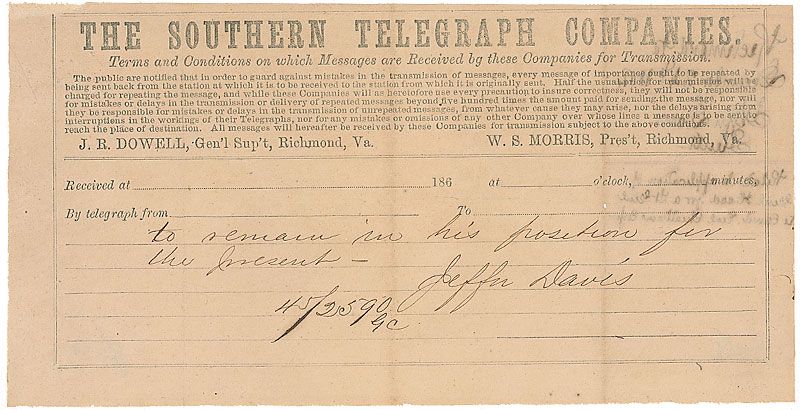 THE SOUTHERN TELEGRAPH COMPANIES.
Terms and Conditions on which Messages are Received by these Companies for Transmission.
The public are notified that in order to guard against mistakes in the transmission of messages, every message of importance ought to be repeated by
being sent back from the station at which it is to be received to the station from which it is originally sent. Half the usual price for transmission will be
charged for repeating the message, and while these Companies will as heretofore use every precaution to insure correctness, they will not be responsible
for mistakes or delays in the transmission or delivery of repeated messages beyond five hundred times the amount paid for sending the message, nor will
they be responsible for mistakes or delays in the transmission of unrepeated messages, from whatever cause they may arise, nor for delays arising from
interruptions in the workings of their Telegraphs, nor for any mistakes or omissions of any other Company over whose lines a message is to be sent to
reach the place of destination. All messages will hereafter be received by these Companies for transmission subject to the above conditions.
J. R. DOWELL, Gen'l Sup't, Richmond, Va. W. S. MORRIS, Pres't, Richmond, Va.
Received at 186 at o'clock, minutes,
By telegraph from To
to remain in his position for
the present - Jeffn Davis
45/2590